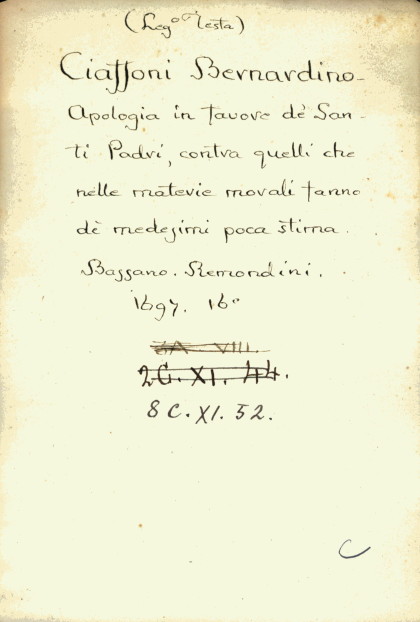 (Leg.º Testa)
Ciaffoni Bernardino -
Apologia in favore dè San -
ti Padri, contra quelli che
nelle materie morali fanno
dè medesimi poca stima.
Bassano. Remondini.
1697. 16º
3A. VIII.
2C. XI. 44.
8 C. XI. 52.
C